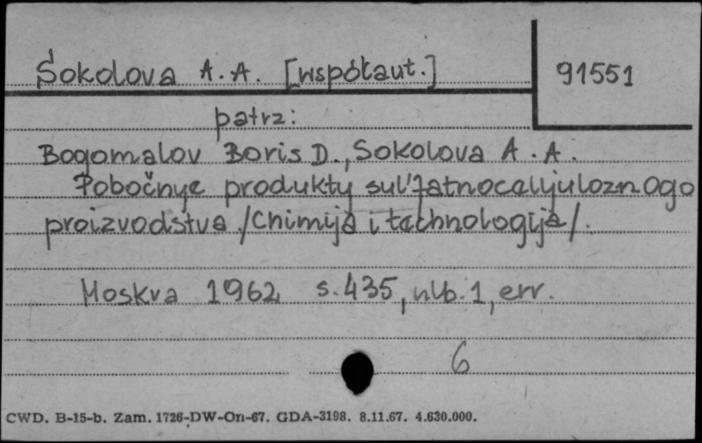 Sokolova A.A. [współaut.]
91551
patrz:
Bogomalov Boris D., Sokolova A.A.
Pobočnye produkty sul'fatnocelljuloznogo
proizvodstva /Chimija i technologija/.
Moskva 1962 s.435, nlb.1, err.
6
CWD. B-15-b. Zam. 1726-DW-On-67. GDA-3198. 8.11.67. 4.630.000.